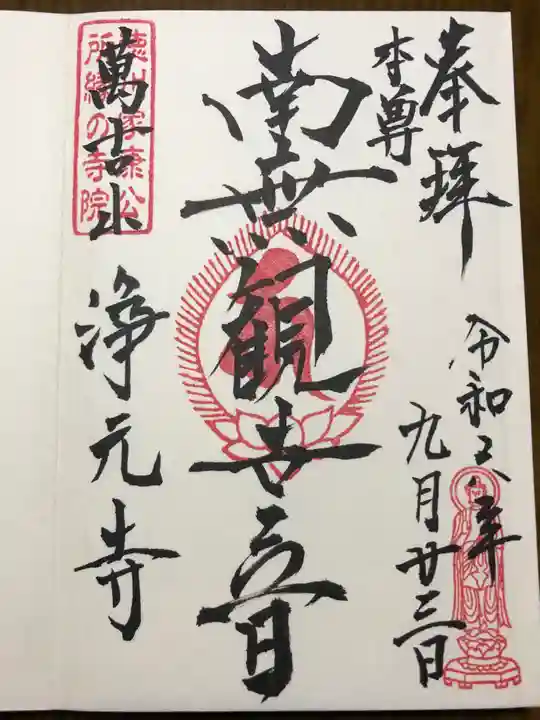 奉拝
本尊
令和六年
九月廿三日
南無観世音
萬吉山
浄元寺
徳川家康公
所縁の寺院